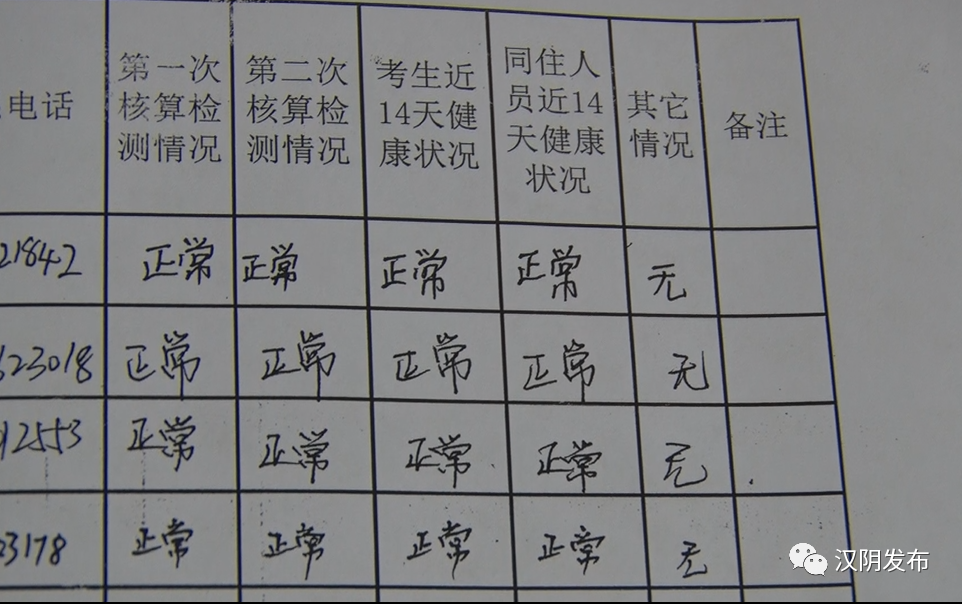 电话 第一次核算检测情况 第二次核算检测情况 考生近14天健康状况 同住人员近14天健康状况 其它情况 备注
21842 正常 正常 正常 正常 无
623018 正常 正常 正常 正常 无
12553 正常 正常 正常 正常 无
3178 正常 正常 正常 正常 无
汉阴发布